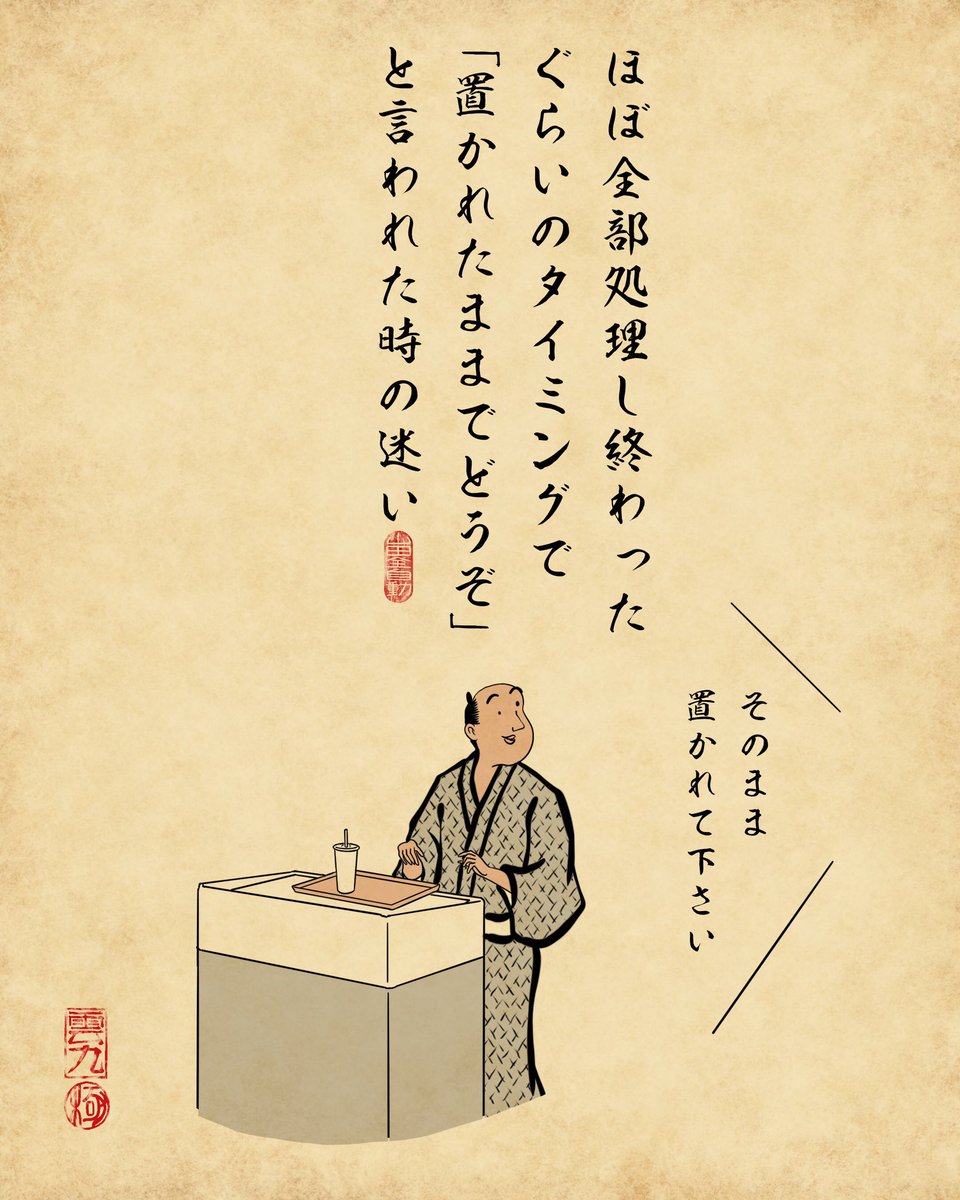 ほぼ全部処理し終わった
ぐらいのタイミングで
「置かれたままでどうぞ」
と言われた時の迷い
そのまま
置かれて下さい